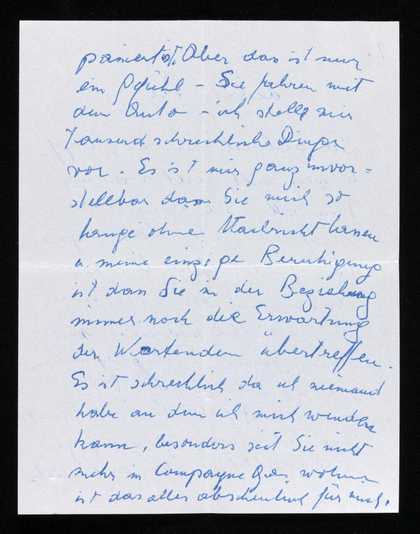 passiert ist. Aber das ist nur
ein Gefühl – Sie fahren mit
dem Auto – ich stelle mir
Tausend schreckliche Dinge
vor. Es ist mir ganz unvor-
stellbar dass Sie mich so
lange ohne Nachricht lassen
u. meine einzige Beruhigung
ist dass Sie in der Beziehung
immer noch die Erwartung
der Wartenden übertreffen.
Es ist schrecklich da ich niemand
habe an den ich mich wenden
kann, besonders seit Sie nicht
mehr in Campagne wohnen
ist das alles abscheulich für mich.